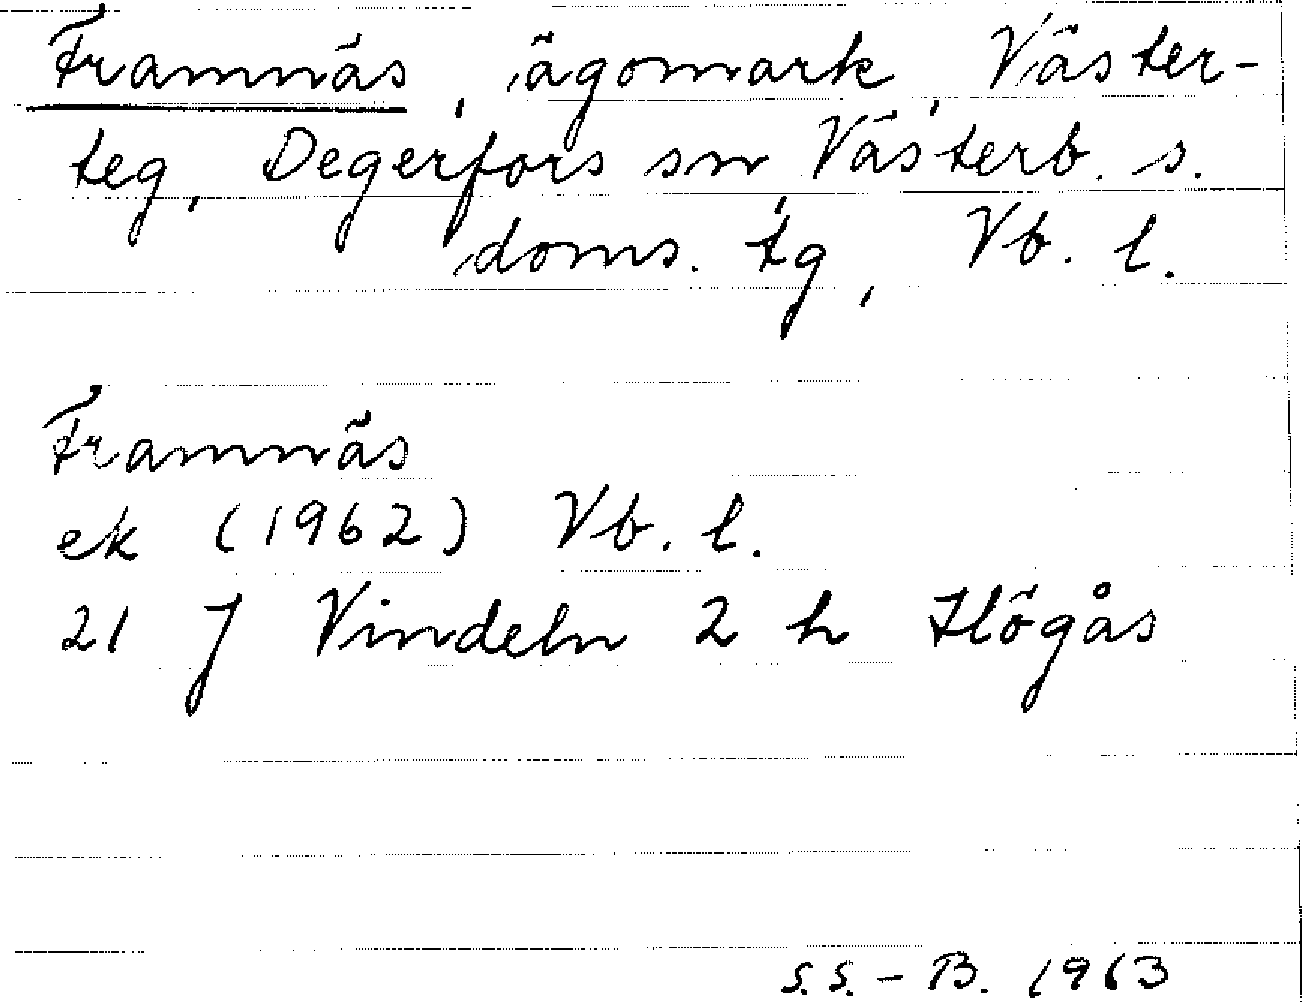 Framnäs, ägomark, Väster-
teg, Degerfors sn, Västerb. s.
doms. tg, Vb. l.
Framnäs
ek (1962) Vb. l.
21 J Vindeln 2 h Högås
S.S.-B. 1963